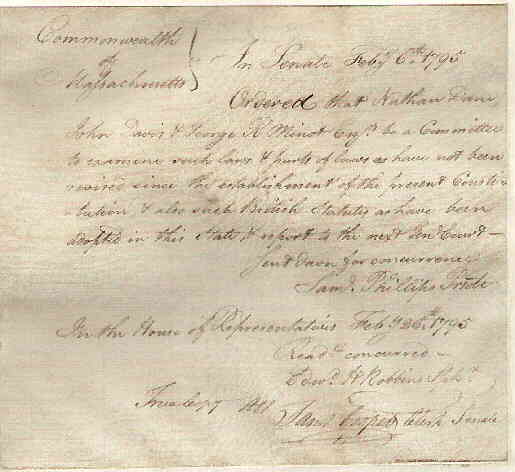 Commonwealth
of
Massachusetts
In Senate Feby 6th 1795
Ordered that Nathan Dane
John Davis & George R Minot Esqrs be a Committee
to examine such laws & parts of laws as have not been
revised since the establishment of the present Consti
tution & also such British Statutes as have been
adopted in this State, & report to the next Genl Court —
Sent down for concurrence
Saml Phillips Presdt
In the House of Representatives Feby 26th 1795
Read & concurred -
Edwd H Robbins Spkr
True Copy
Saml Cooper Clerk Senate